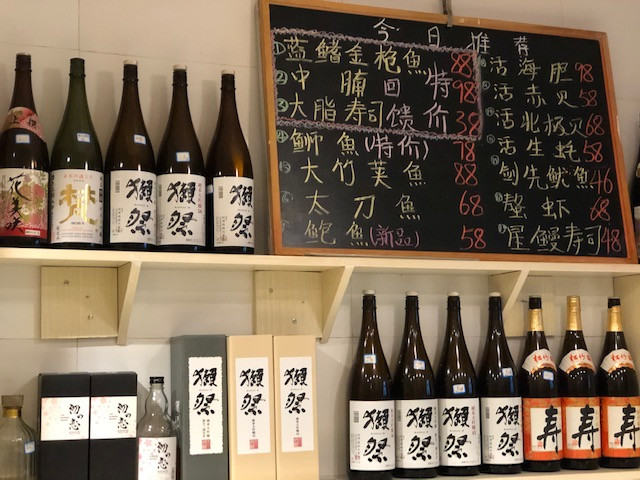 今日推荐
①蓝鳍金枪鱼 88
②中腩 回 特 98
③大脂寿司 馈 价 38
④鰤鱼(特价) 78
大竹荚鱼 88
太刀鱼 68
鲍鱼(新品) 58
活海胆 98
活赤贝 58
活北极贝 68
活生蚝 58
剑先鱿鱼 46
螯虾 68
星鳗寿司 48
梵
獺祭
獺祭
獺祭
初の恋
初の恋
初の恋
獺祭
獺祭
獺祭
獺祭
獺祭
獺祭
獺祭
松竹梅
寿
松竹梅
寿
寿